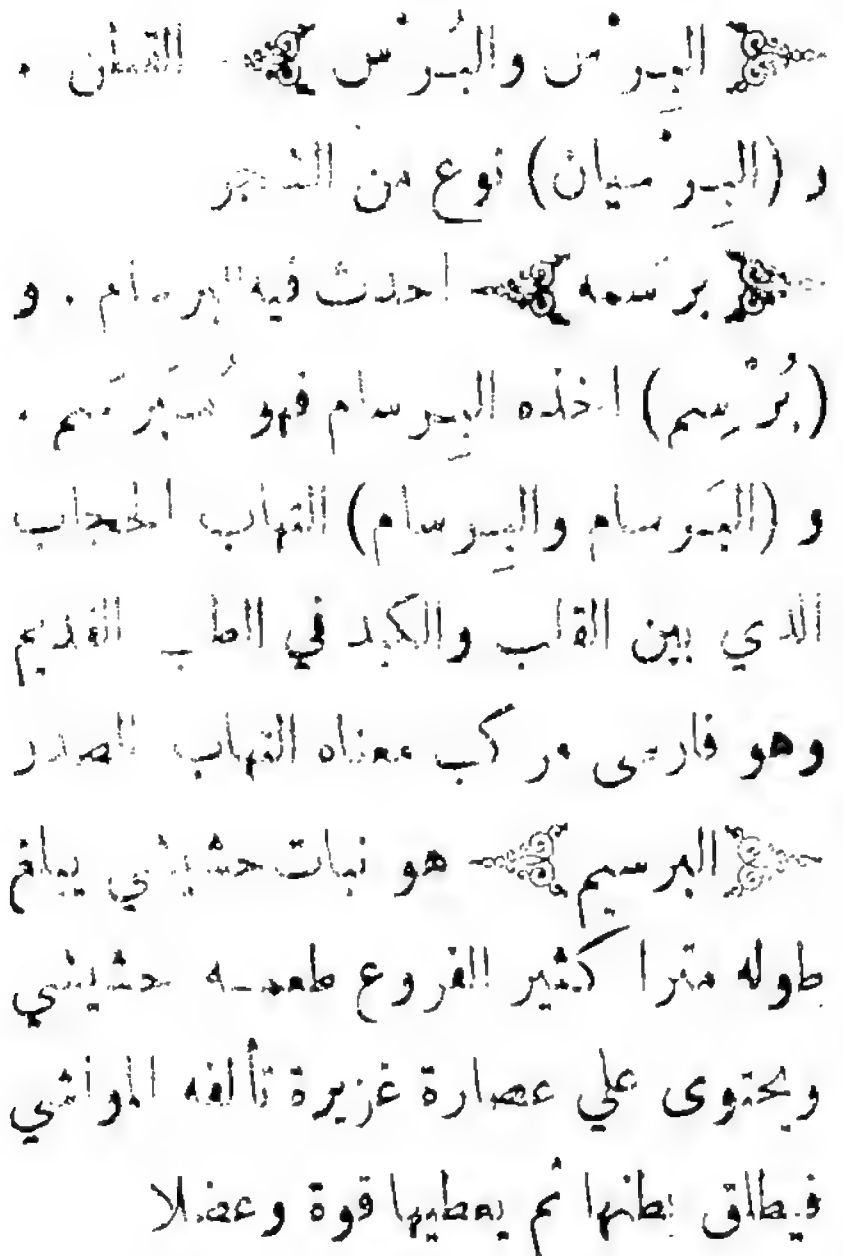 ﴿ البِرْس والبُرْس ﴾ القطن .
و (البِرْسيان) نوع من الشجر
﴿ برْسمه ﴾ احدث فيه البرسام . و
(بُرْسِم) اخذه البِرسام فهو مُبَرسَم .
و (البَرسام والبِرسام) التهاب الحجاب
الذي بين القلب والكبد في الطب القديم
وهو فارسى مركب معناه التهاب الصدر
﴿ البرسيم ﴾ هو نبات حشيشي يبلغ
طوله مترا كثير الفروع طعمه حشيشي
ويحتوى علي عصارة غزيرة تألفه المواشي
فيطلق بطنها ثم يعطيها قوة وعضلا